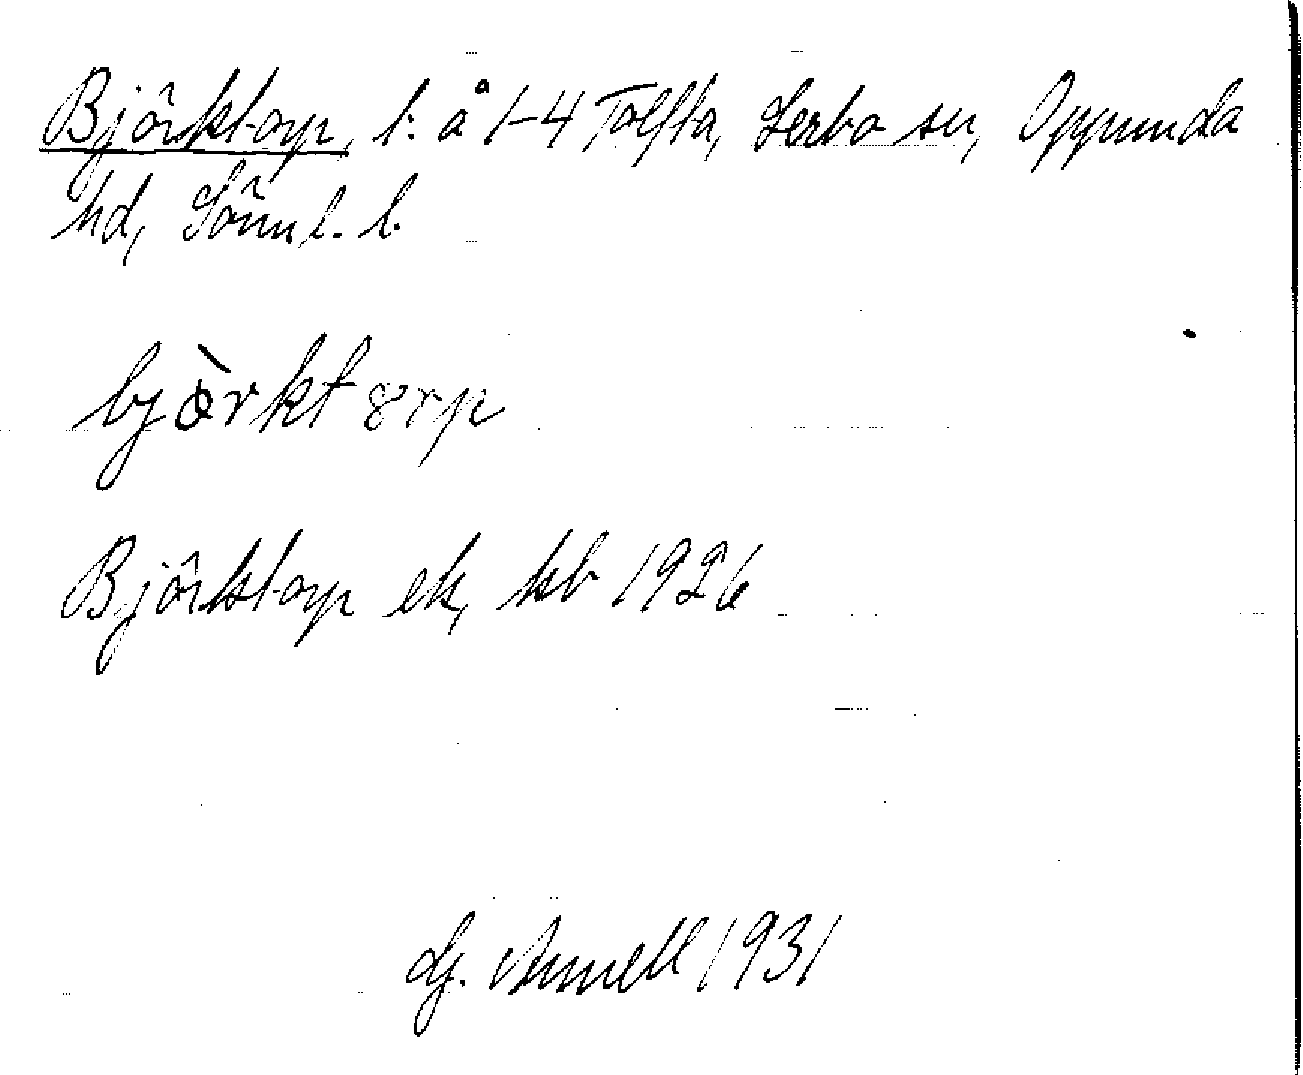 Björktorp, l: å 1-4 Tolfta, Lerbo sn, Oppunda
hd, Sörml. l.
bjὸrktȣrp
Björktorp ek, kb 1926
G. Annell 1931